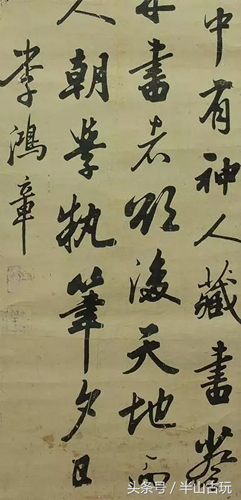 中有神人藏書
書後天地而
人朝學執筆夕已
李鴻章
头条号／半山古玩